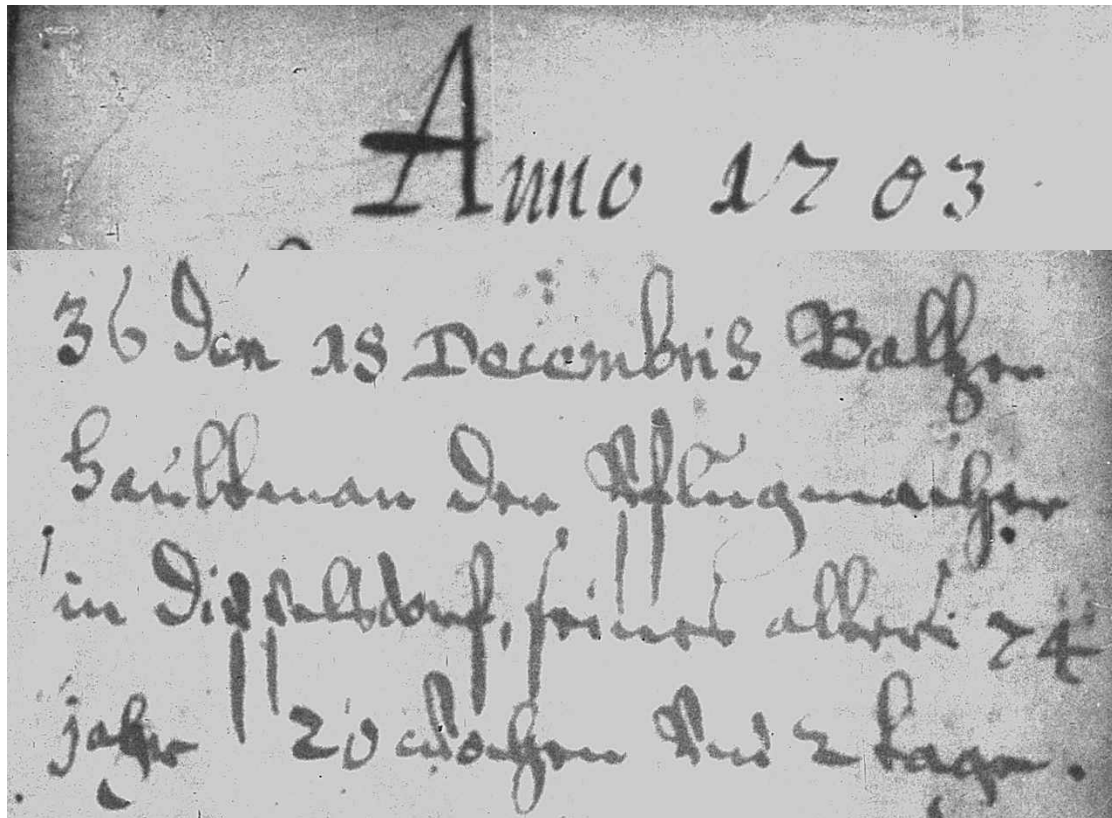 Anno 1703
36 Den 18 Decembris Baltzer
Haubtman den Pflugmacher
in Disselsdorf, seines alters 74
jahr 20 wochen Vnd 2 tage.